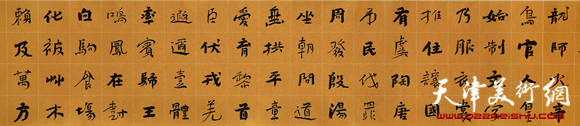 龍師火帝
鳥官人皇
始制文字
乃服衣裳
推位讓國
有虞陶唐
弔民伐罪
周發殷湯
坐朝問道
垂拱平章
愛育黎首
臣伏戎羌
遐邇壹體
率賓歸王
鳴鳳在樹
白駒食場
化被艸木
賴及萬方
天津美術網